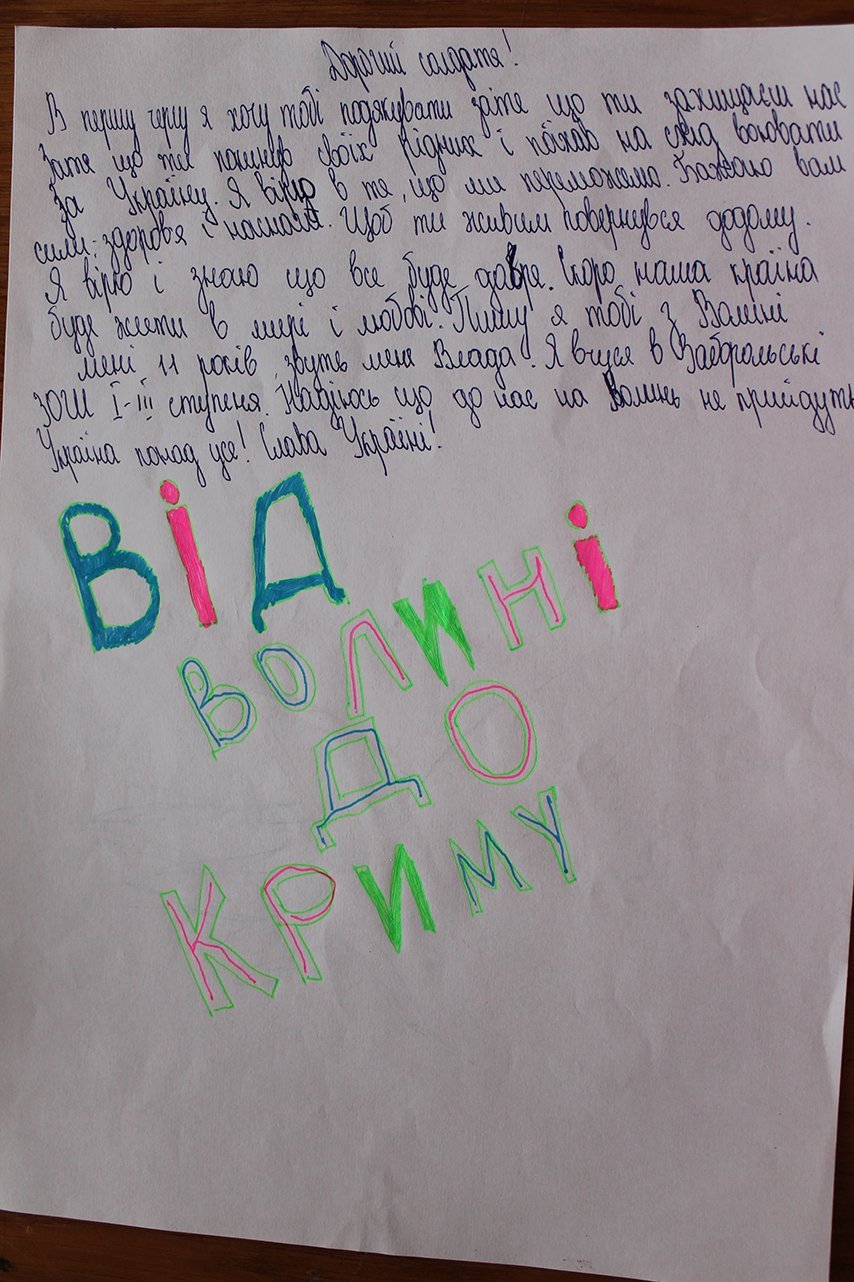 Дорогий солдате!
В першу чергу я хочу тобі подякувати зате що ти захищаєш нас
Зате що ти покинув своїх рідних і поїхав на схід воювати
За Україну. Я вірю в те, що ми переможемо. Бажаю вам
сили, здоровя і наснаги. Щоб ти живим повернувся додому.
Я вірю і знаю що все буде добре. Скоро наша країна
буде жити в мирі і любові. Пишу я тобі з Волині
мені 11 років звуть мене Влада. Я вчуся в Заброльські
ЗОШ І-ІІІ ступеня. Надіюсь що до нас на Волинь не прийдуть
Україна понад усе! Слава Україні!
ВІД
ВОЛИНІ
ДО
КРИМУ